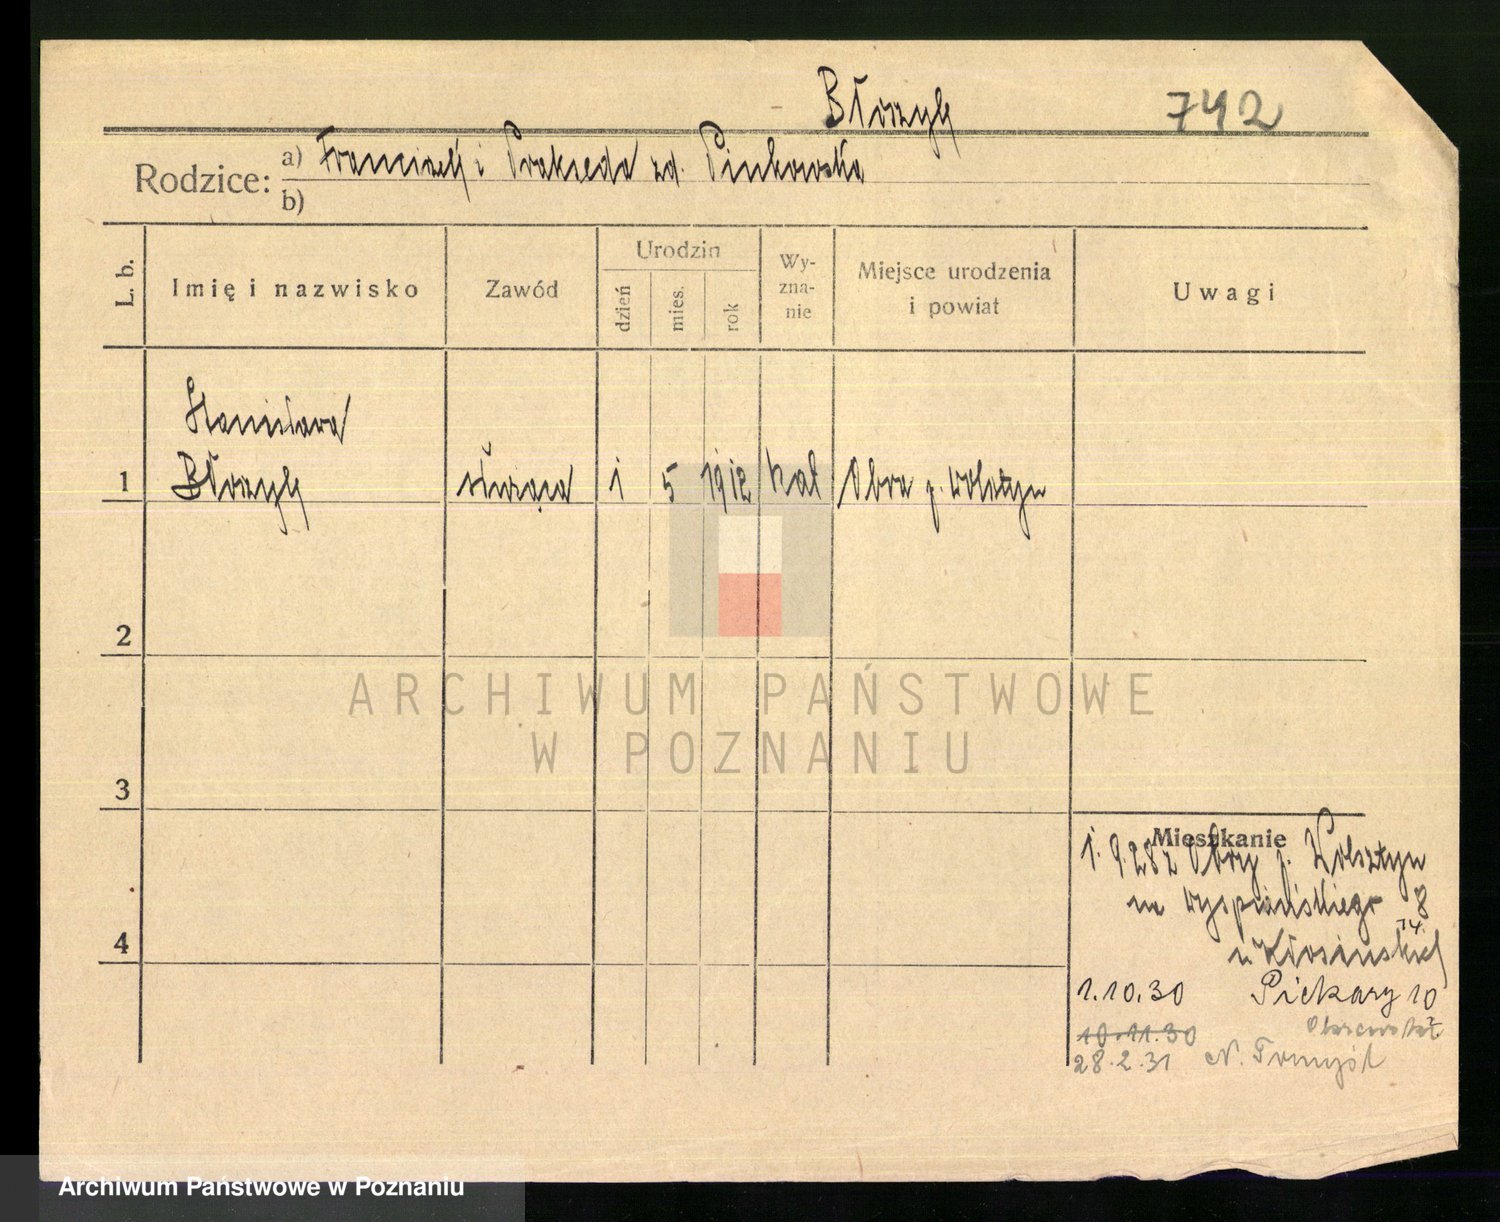 Błoszyk 742
Rodzice: a) Franciszek i Prakseda zd. Pinkowska
b)
L. b. Imię i nazwisko Zawód Urodzin dzień mies. rok Wyznanie Miejsce urodzenia i powiat Uwagi
Stanisława
1 Błoszyk służąca 1 5 1912 kat Obra p. Wolsztyn
2
ARCHIWUM PAŃSTWOWE
W POZNANIU
3
Mieszkanie
1. 9. 28 z Obry p. Wolsztyn
na Wyspiańskiego 8
4
14.
u Kłosińskiej
1.10.30 Piekary 10
10.11.30
28.2.31 N. Tomyśl
Archiwum Państwowe w Poznaniu